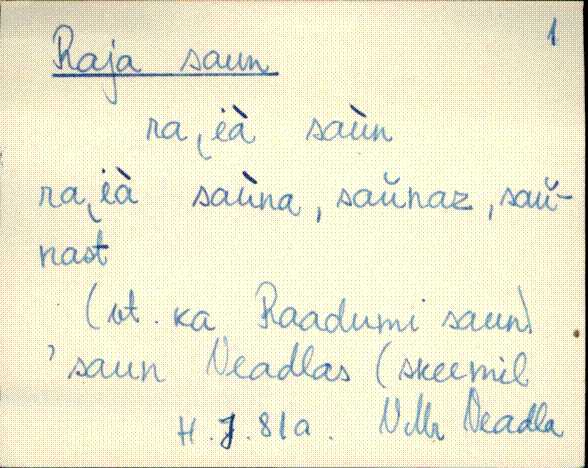 1
Raja saun
ra˛i̯à saùn
ra˛i̯à saùna, saŭnaz, saŭ-
nast
(vt. ka Raadumi saun)
’saun Neadlas (skeemil
H.J. 81a. Neadla